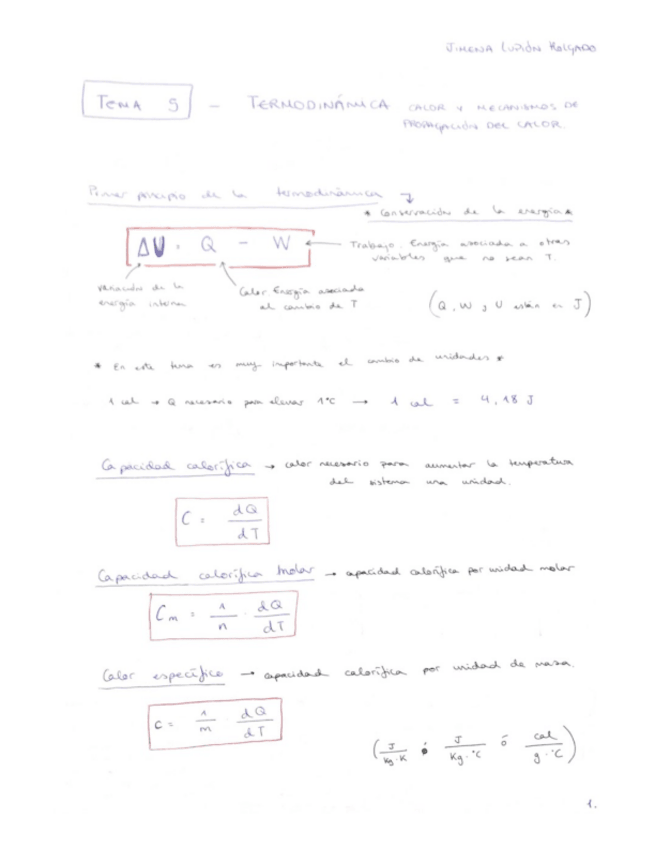 JIMENA LUPIÓN HOLGADO
TEMA 5 - TERMODINÁMICA CALOR Y MECANISMOS DE
PROPAGACIÓN DEL CALOR.
Primer principio de la termodinámica
* Conservación de la energía *
ΔU = Q - W
Trabajo. Energía asociada a otras
variables que no sean T.
variación de la
energía interna
Calor Energía asociada
al cambio de T
(Q, W y U están en J)
* En este tema es muy importante el cambio de unidades *
1 cal → Q necesario para elevar 1°C → 1 cal = 4,18 J
Capacidad calorífica → calor necesario para aumentar la temperatura
del sistema una unidad.
C = dQ/dT
Capacidad calorífica molar → capacidad calorífica por unidad molar
Cm = 1/n · dQ/dT
Calor específico → capacidad calorífica por unidad de masa.
c = 1/m · dQ/dT
(J/Kg·K ó J/Kg·°C ó cal/g·°C)
1.